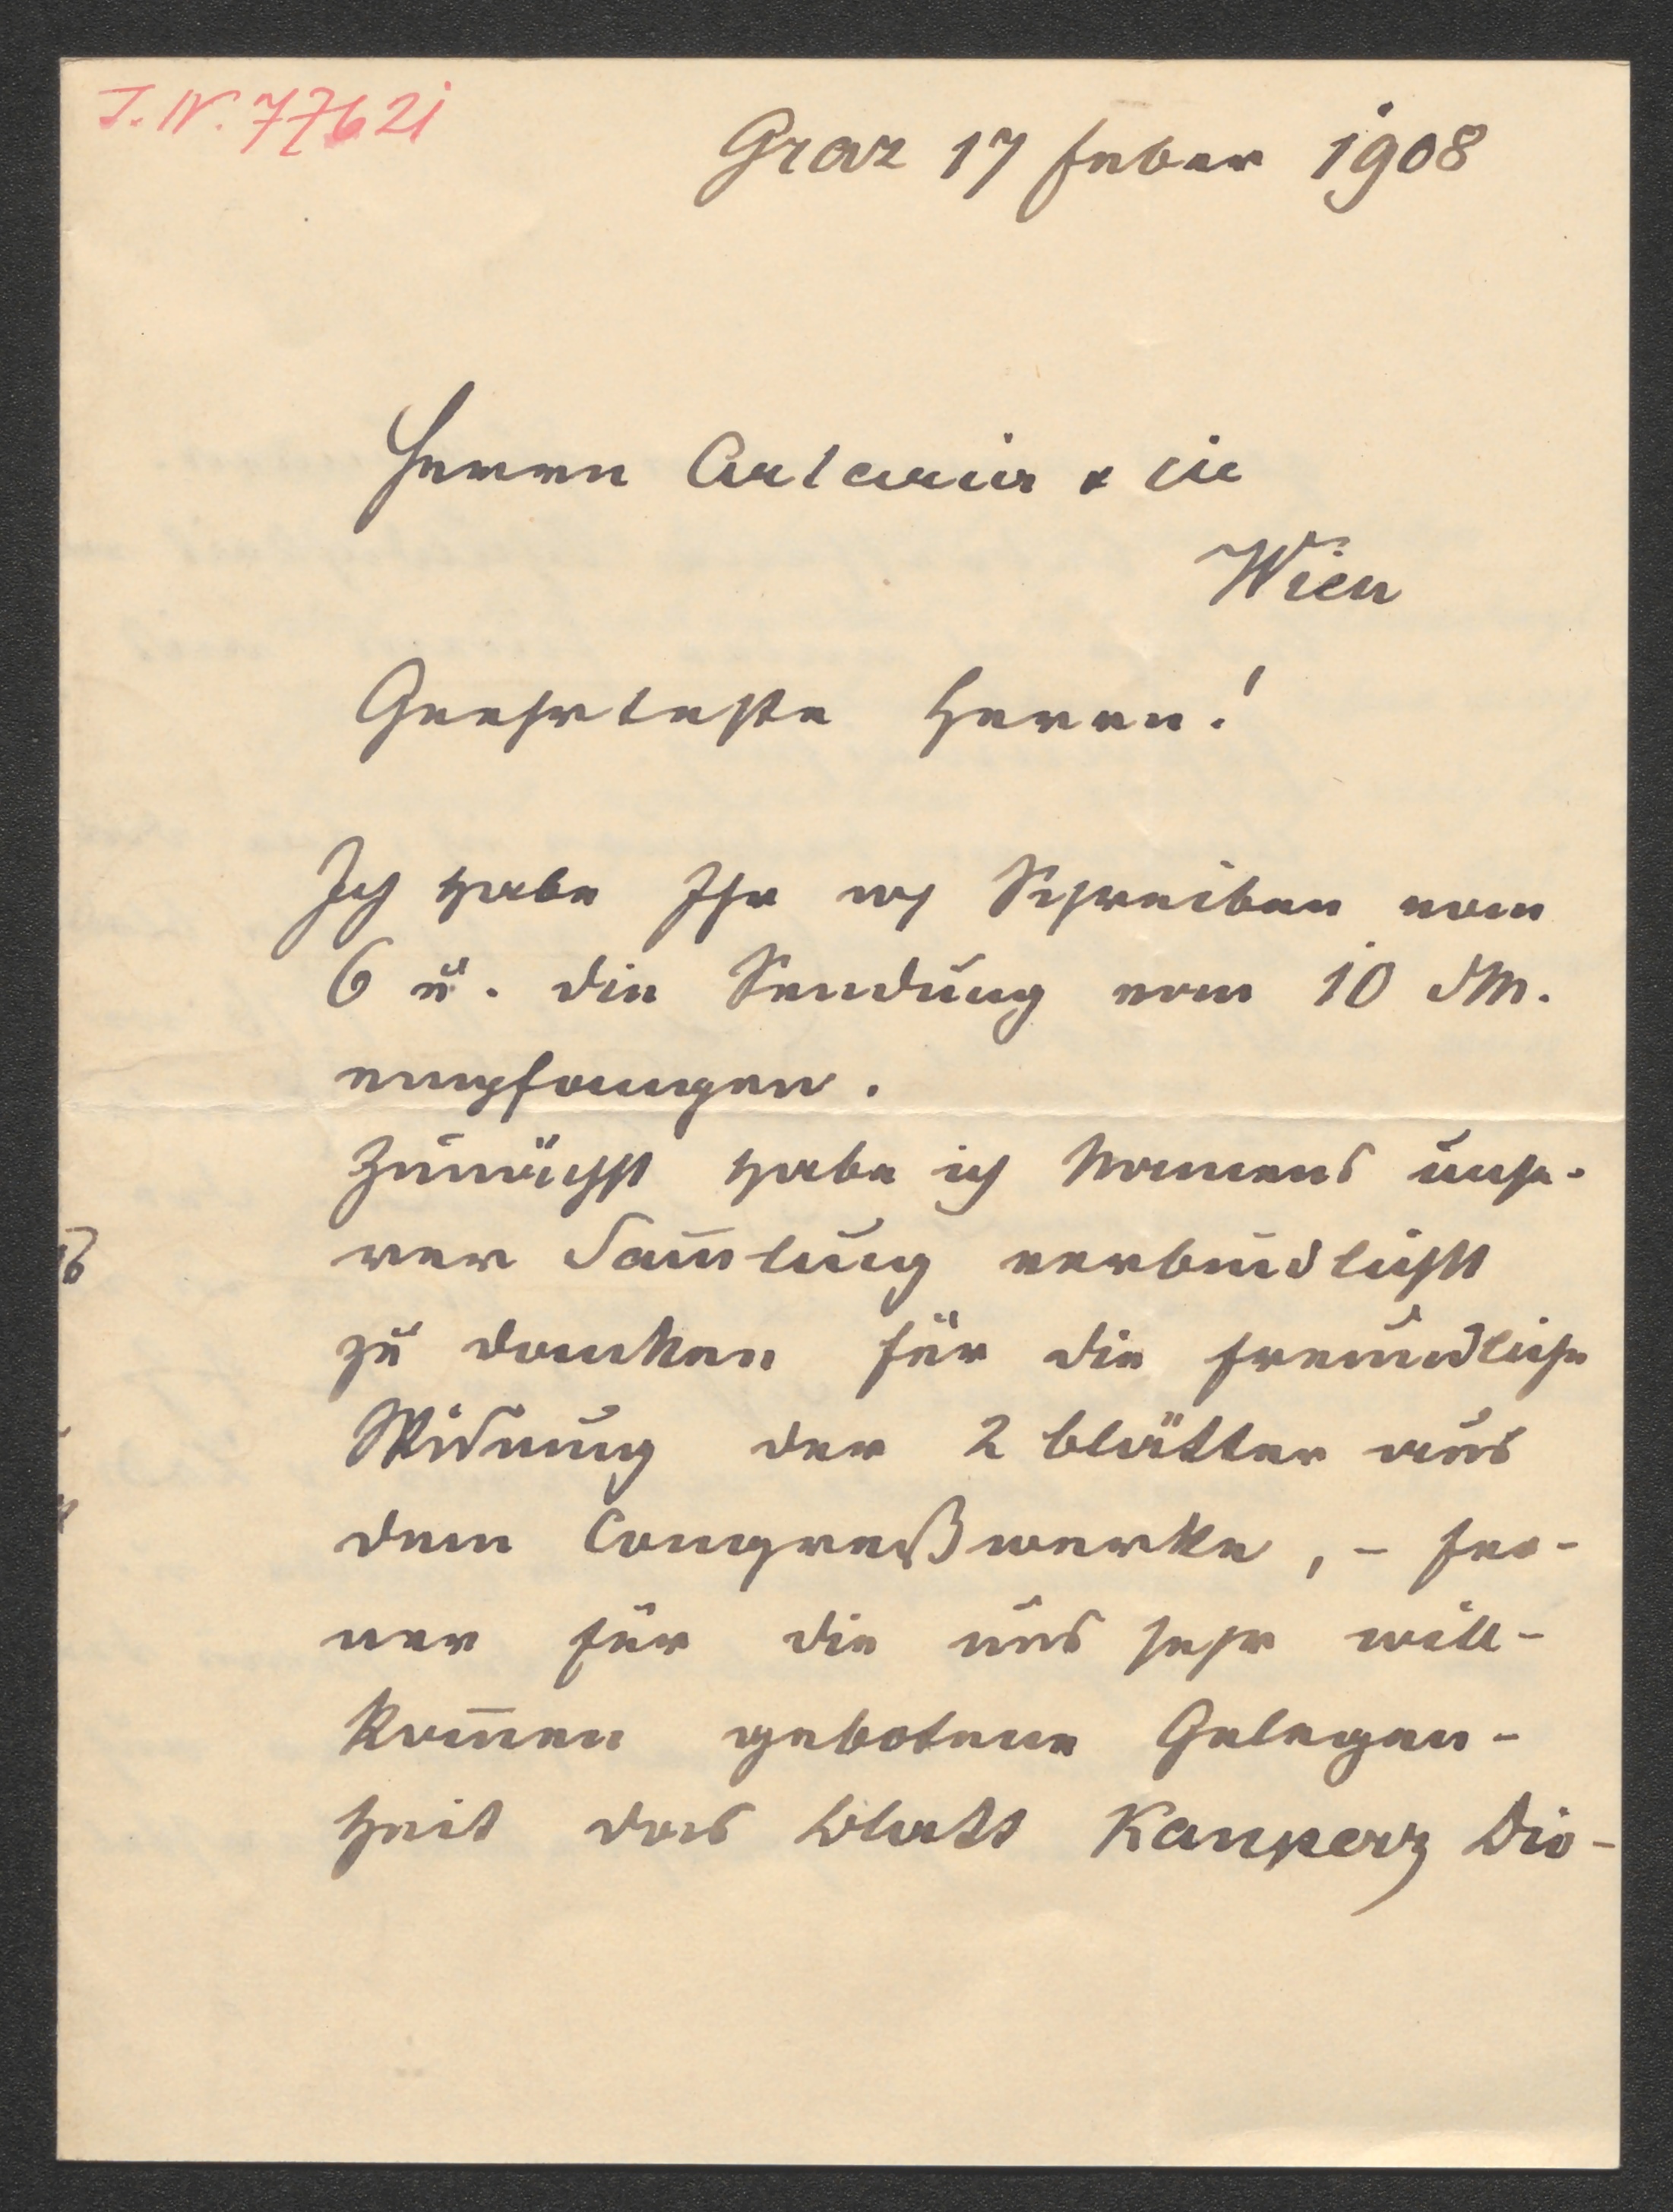 I. N. 77621
Graz 17 Feber 1908
Herren Artaria & Cie
Wien
Geehrteste Herren!
Ich habe Ihr Schreiben vom
6 u. die Sendung vom 10 dM.
empfangen.
Zunächst habe ich Namens unse-
rer Sam̄lung verbindlichst
zu danken für die freundliche
Widmung der 2 Blätter aus
dem Congreßwerke, – fer-
ner für die uns sehr will-
kom̄en gebotene Gelegen-
heit das Blatt Kanperz Dio-